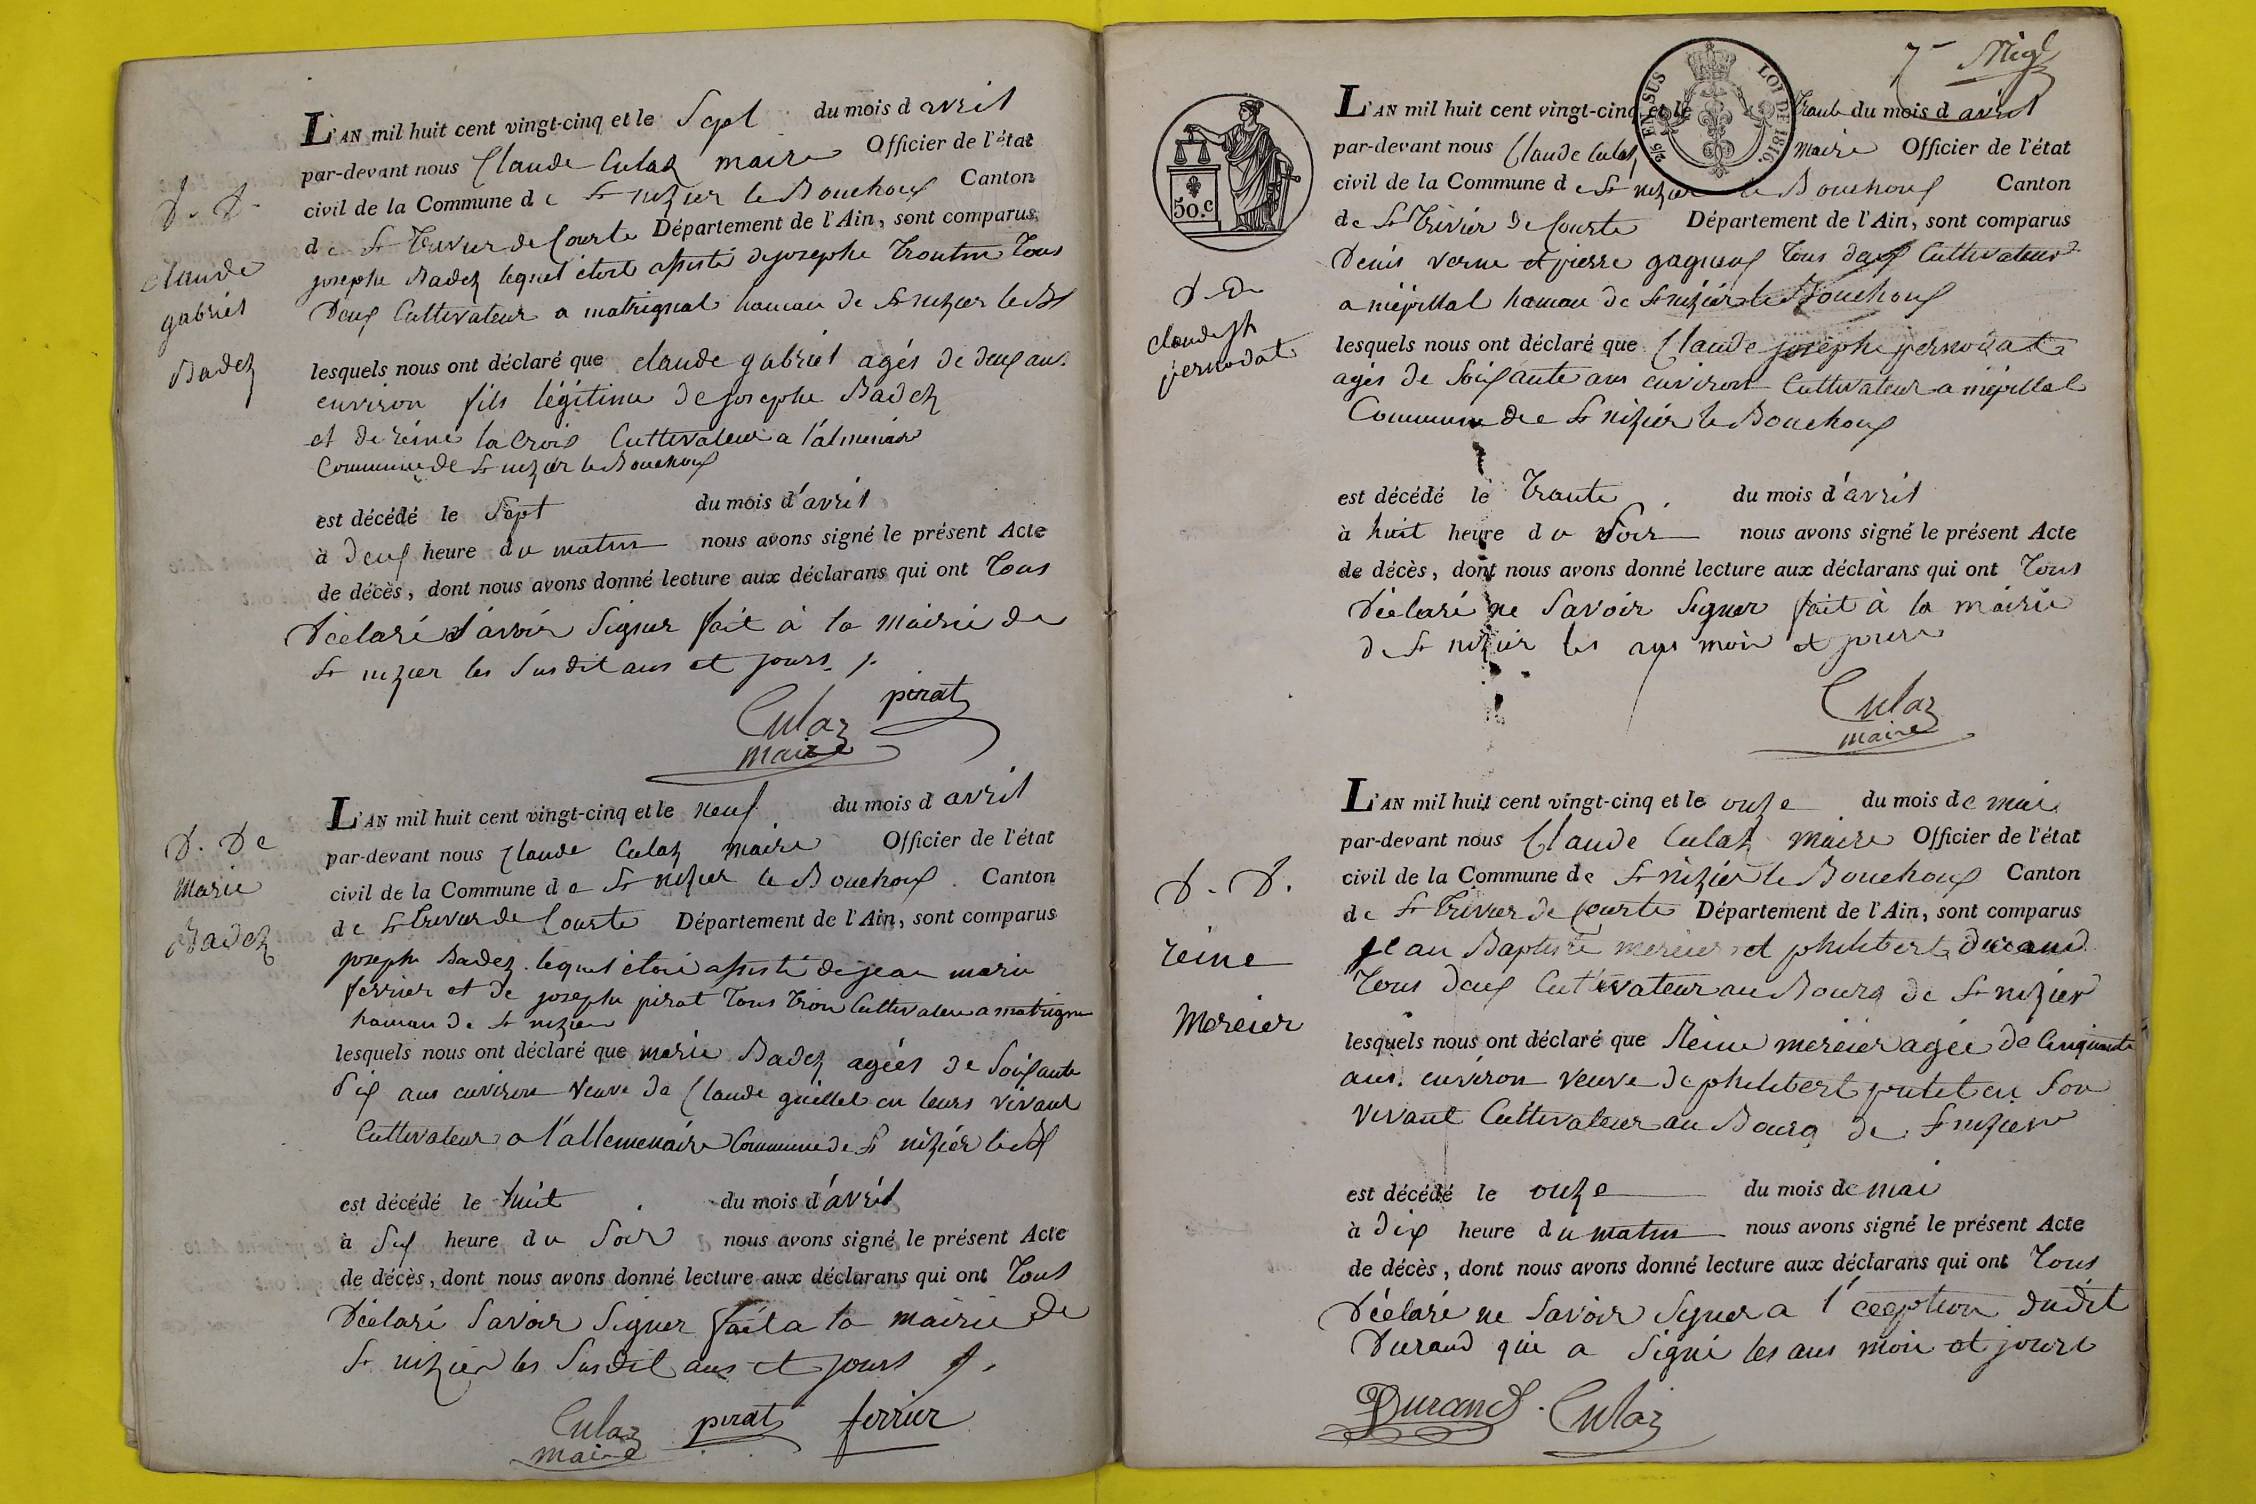 L'AN mil huit cent vingt-cinq et le Sept du mois d avril
par-devant nous Claude Culaz maire Officier de l'état
civil de la Commune de St nizier le Bouchoux Canton
de St Trivier de Courte Département de l'Ain, sont comparus
josephe Badez lequel étoit assisté de josephe Troutin Tous
Deux Cultivateur a matrignat hamau de St nizier le Bx
D. D.
claude
gabriel
Badez
lesquels nous ont déclaré que claude gabriel agés de deux ans
environ fils légitime de josephe Badez
et de réine la Croix Cultivateur a l'almenäre
Commune de St nizier le Bouchoux
est décédé le Sept du mois d'avril
à Deux heure du matin nous avons signé le présent Acte
de décès, dont nous avons donné lecture aux déclarans qui ont Tous
Déclaré Savoir Signer fait à la mairie de
St nizier les Susdit ans et jours
Culaz pirat
maire
L'AN mil huit cent vingt-cinq et le neuf du mois d avril
par-devant nous Claude Culaz maire Officier de l'état
civil de la Commune de St nizier le Bouchoux Canton
de St Trivier de Courte Département de l'Ain, sont comparus
D. De
Marie
Badez
joseph Badez lequel étoi assisté de jean marie
ferrier et de joseph pirat Tous Trois Cultivateur a matrigna
hamau de St nizier
lesquels nous ont déclaré que marie Badez agées de Soixante
Dix ans environ veuve de Claude guillet en leurs vivant
Cultivateur a l'allemenäire Commune de St nizier le Bx
est décédé le huit du mois d'avril
à Six heure du Soir nous avons signé le présent Acte
de décès, dont nous avons donné lecture aux déclarans qui ont Tous
Déclaré Savoir Signer fait a la mairie de
St nizier les Susdit ans et jours
Culaz pirat ferrier
maire
7
EN SUS LOI DE 1816.
50.c
L'AN mil huit cent vingt-cinq et le Trante du mois d avril
par-devant nous Claude Culaz maire Officier de l'état
civil de la Commune de St nizier le Bouchoux Canton
de St Trivier de Courte Département de l'Ain, sont comparus
Denis verne et pierre gagneux Tous deux Cultivateur
a mépillat hamau de St nizier le Bouchoux
D. De
claude jh
pernodat
lesquels nous ont déclaré que Claude josephe pernodat
agés de Soixante ans environ Cultivateur a mépillat
Commune de St nizier le Bouchoux
est décédé le Trante du mois d'avril
à huit heure du Soir nous avons signé le présent Acte
de décès, dont nous avons donné lecture aux déclarans qui ont Tous
Déclaré ne Savoir Signer fait à la mairie
de St nizier les ans mois et jours
Culaz
maire
L'AN mil huit cent vingt-cinq et le onze du mois de mai
par-devant nous Claude Culaz maire Officier de l'état
civil de la Commune de St nizier le Bouchoux Canton
de St Trivier de Courte Département de l'Ain, sont comparus
D. D.
réine
Mercier
jean Baptiste mercier et philibert durand
Tous deux Cultivateur au Bourg de St nizier
lesquels nous ont déclaré que Réine mercier agée de Cinquante
ans environ veuve de philibert putet en Son
vivant Cultivateur au Bourg de St nizier
est décédé le onze du mois de mai
à dix heure du matin nous avons signé le présent Acte
de décès, dont nous avons donné lecture aux déclarans qui ont Tous
Déclaré ne Savoir Signer a l'éception dudit
Durand qui a Signé les ans mois et jours
Durand Culaz